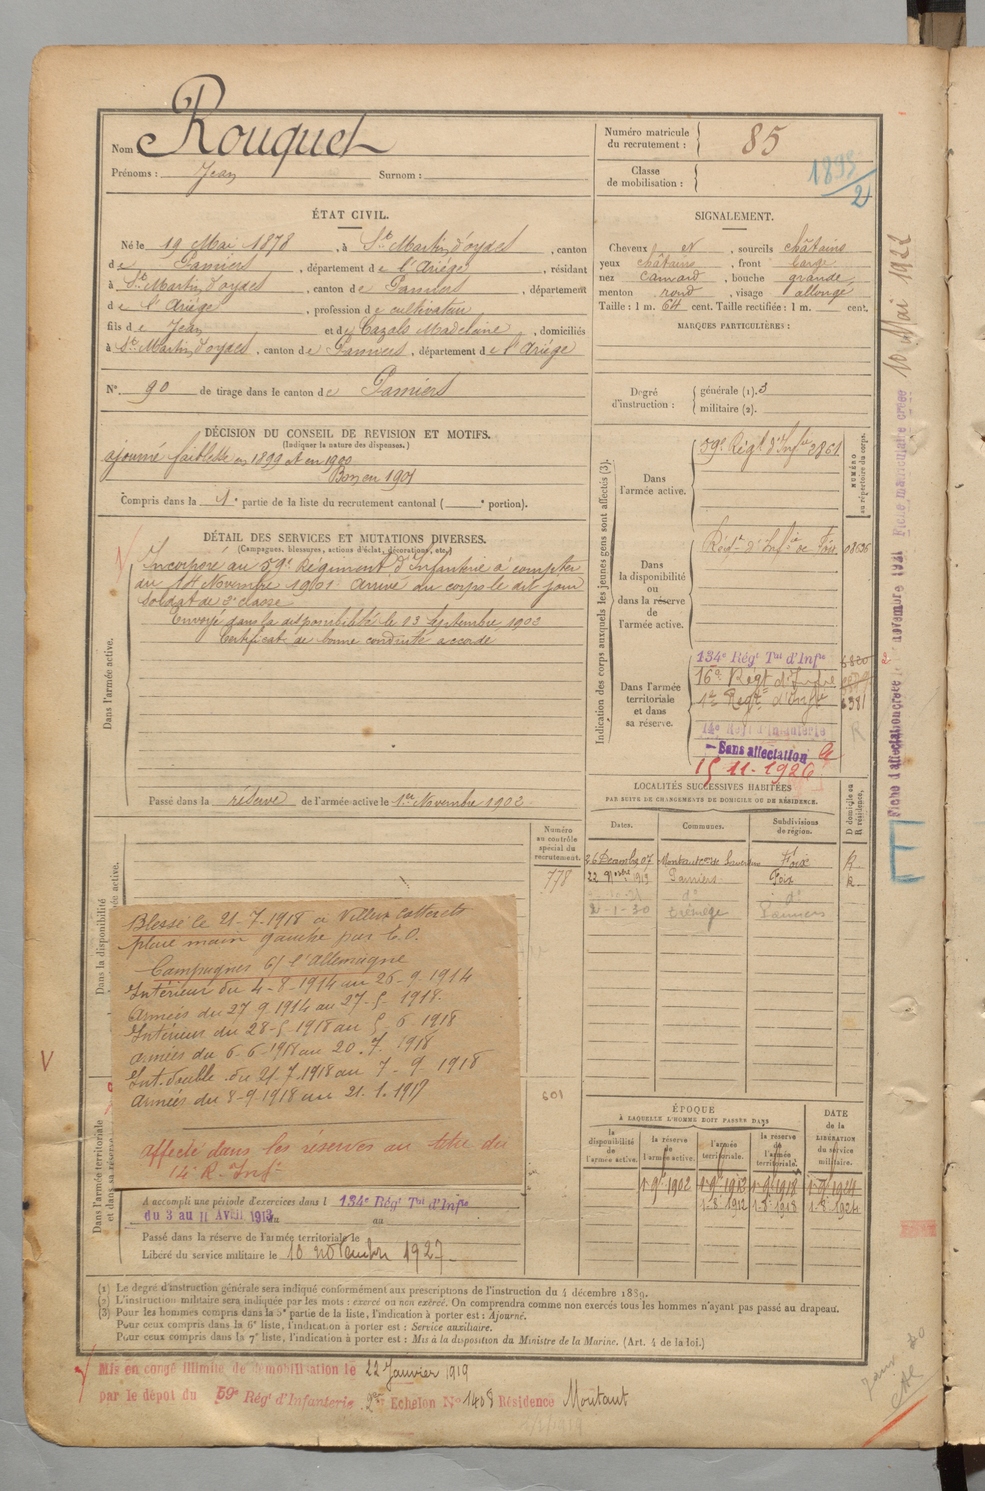 Nom Rouquet
Prénoms : Jean Surnom :
Numéro matricule du recrutement : 85
Classe de mobilisation : 1898/2
ÉTAT CIVIL.
Né le 19 Mai 1878, à St Martin d'oydes, canton
de Pamiers, département de l'Ariége, résidant
à St Martin d'oydes, canton de Pamiers, département
de l'Ariége, profession de cultivateur
fils de Jean et de Cazals Madelaine, domiciliés
à St Martin d'oydes, canton de Pamiers, département de l'Ariége
N° 90 de tirage dans le canton de Pamiers
SIGNALEMENT.
Cheveux et, sourcils châtains
yeux châtains, front large
nez camard, bouche grande
menton rond, visage allongé
Taille : 1 m. 64 cent. Taille rectifiée : 1 m. cent.
MARQUES PARTICULIÈRES :
Degré d'instruction : générale (1). 3
militaire (2).
DÉCISION DU CONSEIL DE REVISION ET MOTIFS.
(Indiquer la nature des dispenses.)
ajourné faiblesse en 1899 et en 1900
Bon en 1901
Compris dans la 1e partie de la liste du recrutement cantonal ( e portion).
DÉTAIL DES SERVICES ET MUTATIONS DIVERSES.
(Campagnes, blessures, actions d'éclat, décorations, etc.)
Dans l'armée active.
Incorporé au 59e Régiment d'Infanterie à compter
du 14 Novembre 1901. Arrivé au corps le dit jour
soldat de 2e classe
Envoyé dans la disponibilité le 13 septembre 1902
Certificat de bonne conduite accordé
Passé dans la réserve de l'armée active le 1er Novembre 1902
Indication des corps auxquels les jeunes gens sont affectés (3).
NUMÉRO au répertoire du corps.
Dans l'armée active.
59e Régt d'Infie 2861
Dans la disponibilité ou dans la réserve de l'armée active.
Régt d'Infie de Foix
Dans l'armée territoriale et dans sa réserve.
134e Régt Tal d'Infie
Régt d'Infie
Régt d'Infie 6381
14e Régt d'Infanterie
Sans affectation
15.11.1926
Numéro au contrôle spécial du recrutement.
778
601
Blessé le 21-7-1918 à Villers Cotterets
plaie main gauche par E.O.
Campagnes c/ l'Allemagne
Intérieur du 4-8-1914 au 26-9-1914
Armées du 27 9 1914 au 27-5-1918
Intérieur du 28-5 1918 au 5 6 1918
Armées du 6-6-1918 au 20.7.1918
Int. double du 21.7.1918 au 7-9 1918
Armées du 8-9-1918 au 21.1.1919
affecté dans les réserves au titre du
14e R. Inf.
Dans la disponibilité
Dans l'armée territoriale
A accompli une période d'exercices dans l 134e Régt Tal d'Infie
du 3 au 11 Avril 1913 au
Passé dans la réserve de l'armée territoriale le
Libéré du service militaire le 10 novembre 1927
LOCALITÉS SUCCESSIVES HABITÉES
PAR SUITE DE CHANGEMENTS DE DOMICILE OU DE RÉSIDENCE.
Dates. Communes. Subdivisions de région. D domicile ou R résidence.
26 Décembre 07 Foix R
22 9bre 1912 Pamiers Foix R.
1-30 Pamiers
ÉPOQUE
À LAQUELLE L'HOMME DOIT PASSER DANS
la disponibilité de l'armée active.
la réserve de l'armée active.
l'armée territoriale.
la réserve de l'armée territoriale.
DATE de la LIBÉRATION du service militaire.
1-9 1902 1-9 1912 1-9 1918 1-9 1924
1-8 1912 1-8 1918 1-8 1924
(1) Le degré d'instruction générale sera indiqué conformément aux prescriptions de l'instruction du 4 décembre 1889.
(2) L'instruction militaire sera indiquée par les mots : exercé ou non exercé. On comprendra comme non exercés tous les hommes n'ayant pas passé au drapeau.
(3) Pour les hommes compris dans la 5e partie de la liste, l'indication à porter est : Ajourné.
Pour ceux compris dans la 6e liste, l'indication à porter est : Service auxiliaire.
Pour ceux compris dans la 7e liste, l'indication à porter est : Mis à la disposition du Ministre de la Marine. (Art. 4 de la loi.)
Mis en congé illimité de démobilisation le 22 Janvier 1919
par le dépôt du 59e Régt d'Infanterie 2e Echelon N° 1408 Résidence Montaut
Fiche d'affectation créée novembre 1931 Fiche matriculaire créée 10 Mai 1922